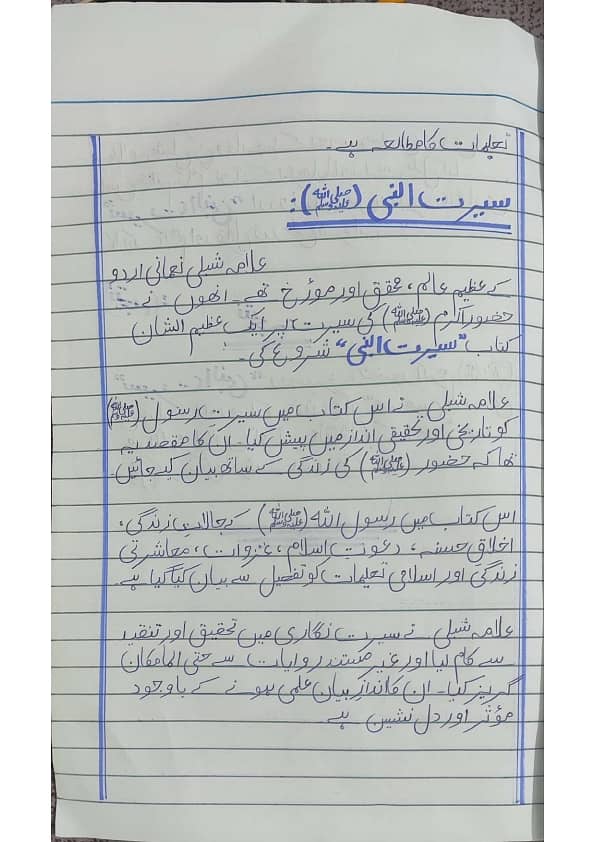 تعلیمات کا مطالعہ ہے۔
سیرت النبی (ﷺ):
علامہ شبلی نعمانی اردو
کے عظیم عالم، محقق اور مورخ تھے۔ انھوں نے
حضور اکرم (ﷺ) کی سیرت پر ایک عظیم الشان
کتاب "سیرت النبی" شروع کی۔
علامہ شبلی نے اس کتاب میں سیرتِ رسول (ﷺ)
کو تاریخی اور تحقیقی انداز میں پیش کیا۔ ان کا مقصد یہ
تھا کہ حضور (ﷺ) کی زندگی کے ساتھ بیان کیے جائیں
اس کتاب میں رسول اللہ (ﷺ) کے حالاتِ زندگی،
اخلاق حسنہ، دعوت اسلام، غزوات، معاشرتی
زندگی اور اسلامی تعلیمات کو تفصیل سے بیان کیا گیا ہے۔
علامہ شبلی نے سیرت نگاری میں تحقیق اور تنقید
سے کام لیا اور غیر مستند روایات سے حتی الامکان
گریز کیا۔ ان کا اندازِ بیان علمی ہونے کے باوجود
مؤثر اور دل نشین ہے۔